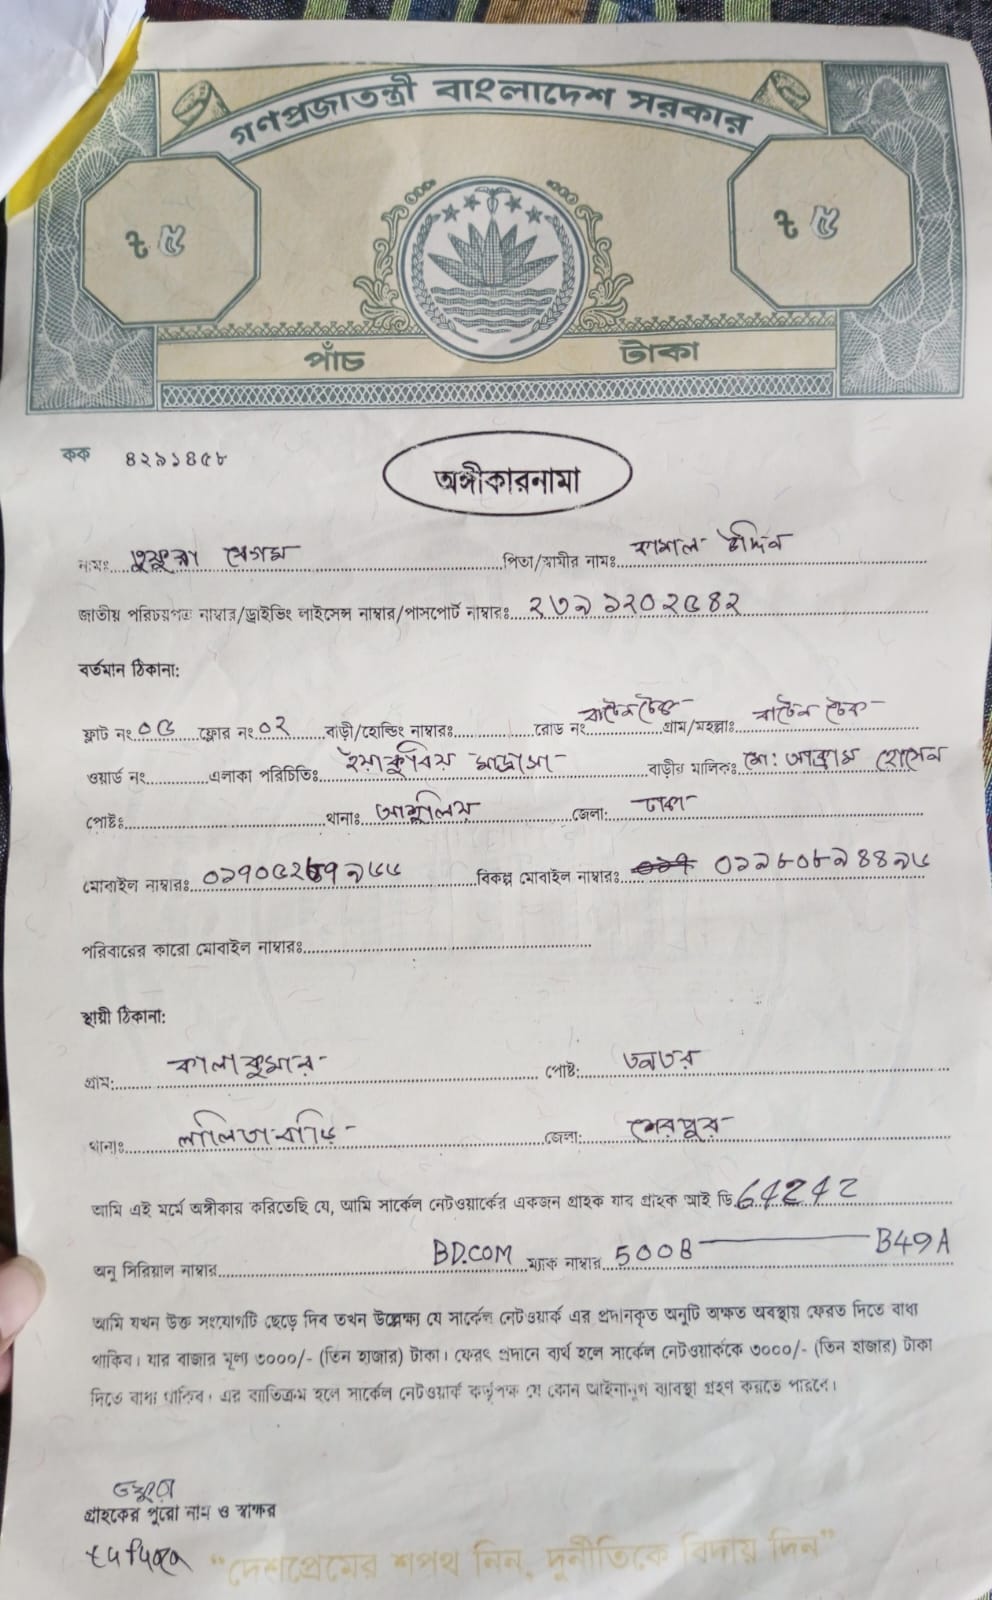 গণপ্রজাতন্ত্রী বাংলাদেশ সরকার
৳ ৫ ৳ ৫
পাঁচ টাকা
কক ৪২৯১৪৫৮
অঙ্গীকারনামা
নামঃ বেগম পিতা/স্বামীর নামঃ কামাল উদ্দিন
জাতীয় পরিচয়পত্র নাম্বার/ড্রাইভিং লাইসেন্স নাম্বার/পাসপোর্ট নাম্বারঃ ২৩৯১২০২৫৪২
বর্তমান ঠিকানা:
ফ্লাট নং ০৫ ফ্লোর নং ০২ বাড়ী/হোল্ডিং নাম্বারঃ রোড নং গ্রাম/মহল্লাঃ
ওয়ার্ড নং এলাকা পরিচিতিঃ ইয়াকুবিয় মাদ্রাসা বাড়ীর মালিকঃ মো: আক্রাম হোসেন
পোষ্টঃ থানাঃ আশুলিয় জেলা: ঢাকা
মোবাইল নাম্বারঃ বিকল্প মোবাইল নাম্বারঃ
পরিবারের কারো মোবাইল নাম্বারঃ
স্থায়ী ঠিকানা:
গ্রাম: কালাকুমার পোষ্ট: তন্তর
থানাঃ নালিতাবাড়ি জেলা: শেরপুর
আমি এই মর্মে অঙ্গীকার করিতেছি যে, আমি সার্কেল নেটওয়ার্কের একজন গ্রাহক যার গ্রাহক আই ডি 64242
অনু সিরিয়াল নাম্বার BD.COM ম্যাক নাম্বার 500B B49A
আমি যখন উক্ত সংযোগটি ছেড়ে দিব তখন উল্লেক্ষ্য যে সার্কেল নেটওয়ার্ক এর প্রদানকৃত অনুটি অক্ষত অবস্থায় ফেরত দিতে বাধ্য
থাকিব। যার বাজার মূল্য ৩০০০/- (তিন হাজার) টাকা। ফেরৎ প্রদানে ব্যর্থ হলে সার্কেল নেটওয়ার্ককে ৩০০০/- (তিন হাজার) টাকা
দিতে বাধ্য থাকিব। এর ব্যতিক্রম হলে সার্কেল নেটওয়ার্ক কর্তৃপক্ষ যে কোন আইনানুগ ব্যবস্থা গ্রহণ করতে পারবে।
গ্রাহকের পুরো নাম ও স্বাক্ষর
“দেশপ্রেমের শপথ নিন, দুর্নীতিকে বিদায় দিন”